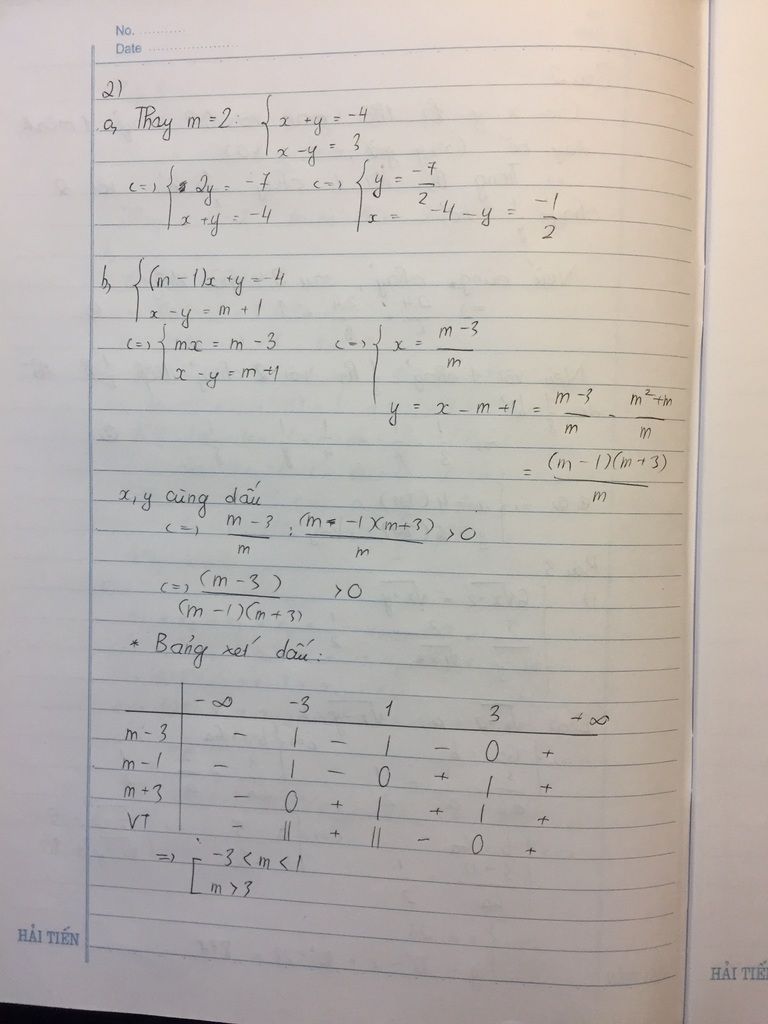 No. ............
Date ........................
2)
a, Thay m = 2: { x + y = -4
x - y = 3
<=> { 2y = -7 <=> { y = -7/2
x + y = -4 x = -4 - y = -1/2
b, { (m - 1)x + y = -4
x - y = m + 1
<=> { mx = m - 3 <=> { x = (m - 3)/m
x - y = m + 1
y = x - m + 1 = (m - 3)/m - (m² + m)/m
= (m - 1)(m + 3)/m
x, y cùng dấu
<=> (m - 3)/m : (m - 1)(m + 3)/m > 0
<=> (m - 3)/(m - 1)(m + 3) > 0
* Bảng xét dấu:
-∞ -3 1 3 +∞
m - 3 - | - | - 0 +
m - 1 - | - 0 + | +
m + 3 - 0 + | + | +
VT - || + || - 0 +
=> [ -3 < m < 1
m > 3
HẢI TIẾN
HẢI TIẾ